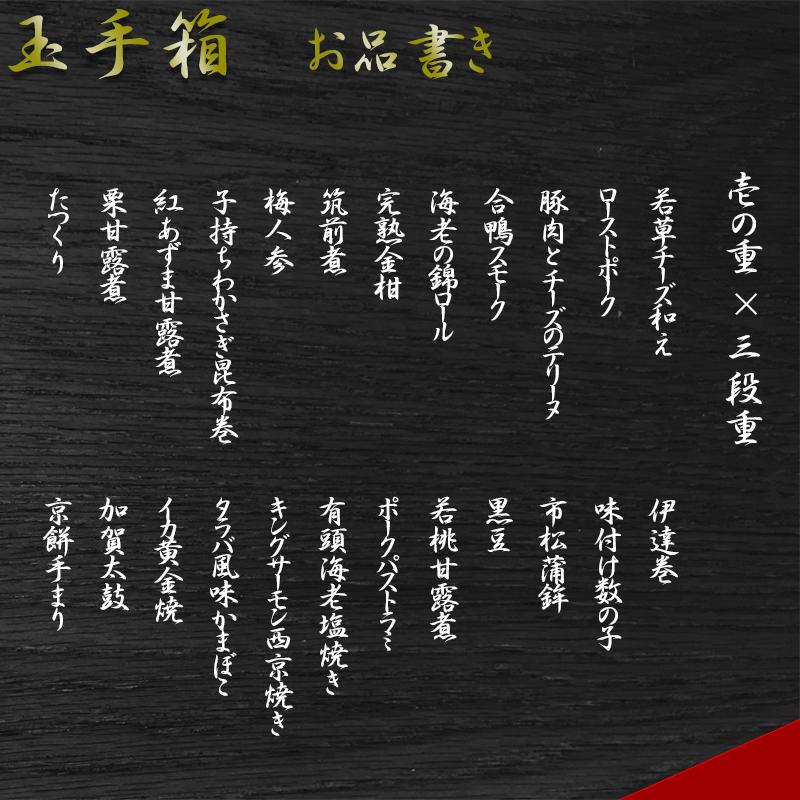 玉手箱 お品書き
壱の重 × 三段重
若草チーズ和え
ローストポーク
豚肉とチーズのテリーヌ
合鴨スモーク
海老の錦ロール
完熟金柑
筑前煮
梅人参
子持ちわかさぎ昆布巻
紅あずま甘露煮
栗甘露煮
たつくり
伊達巻
味付け数の子
市松蒲鉾
黒豆
若桃甘露煮
ポークパストラミ
有頭海老塩焼き
キングサーモン西京焼き
タラバ風味かまぼこ
イカ黄金焼
加賀太鼓
京餅手まり